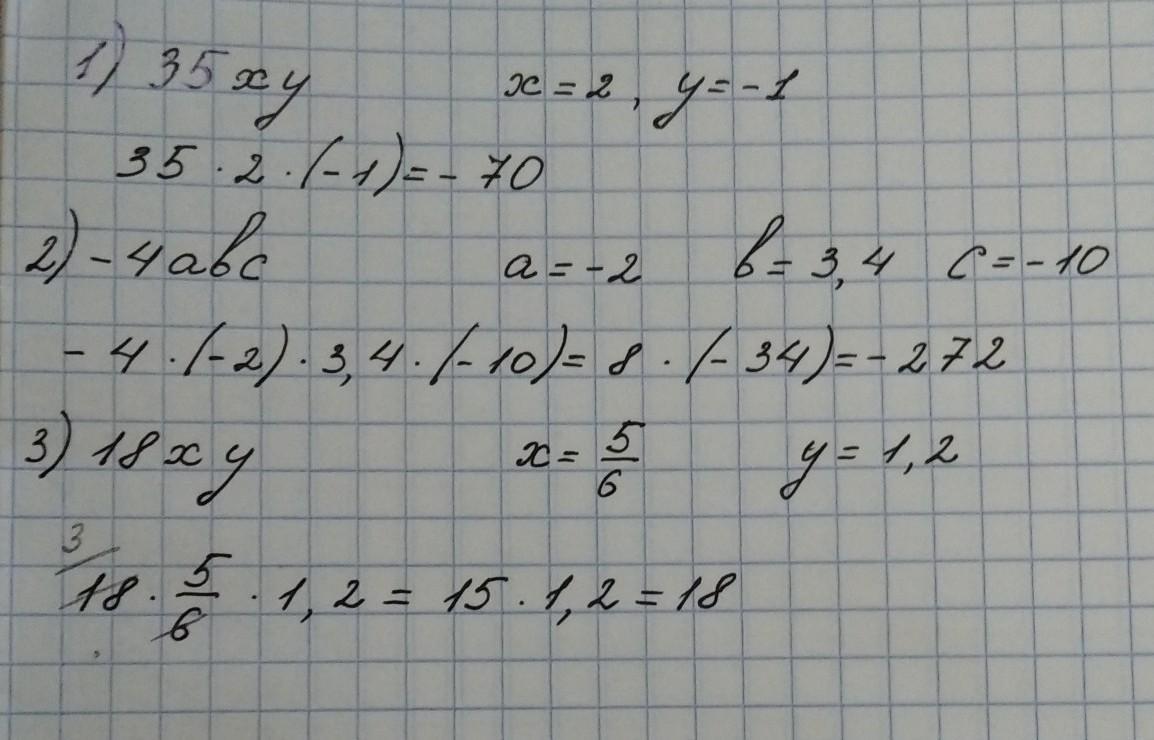 1) 35xy x = 2, y = -1
35 · 2 · (-1) = - 70
2) - 4abc a = -2 b = 3,4 c = -10
- 4 · (-2) · 3,4 · (-10) = 8 · (- 34) = - 272
3) 18xy x = 5/6 y = 1,2
3
18 · 5/6 · 1,2 = 15 · 1,2 = 18